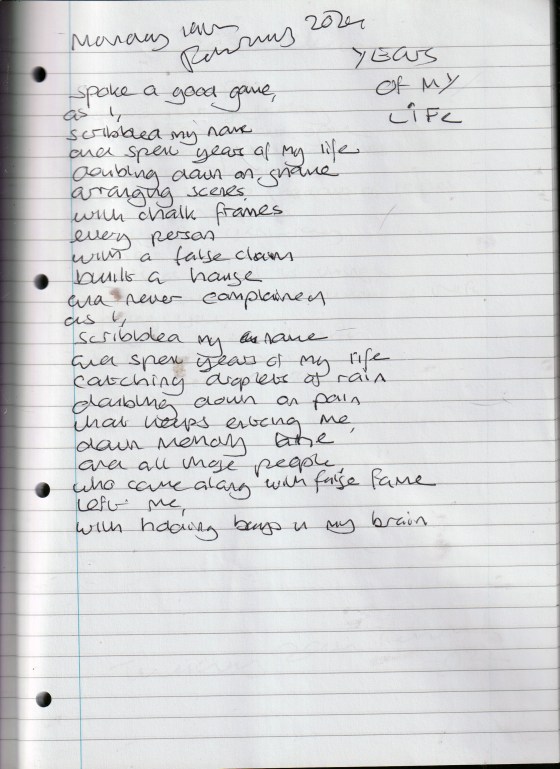 Monday
February 2024
YEARS
OF MY
LIFE
spoke a good game,
as I,
scribbled my name
and spent years of my life
doubling down on shame
arranging scenes,
with chalk frames
every person
with a false claim
built a house
and never complained
as I,
scribbled my name
and spent years of my life
catching droplets of rain
doubling down on pain
that keeps enticing me,
down memory lane
and all those people,
who came along with false fame
left me,
with holding bays in my brain